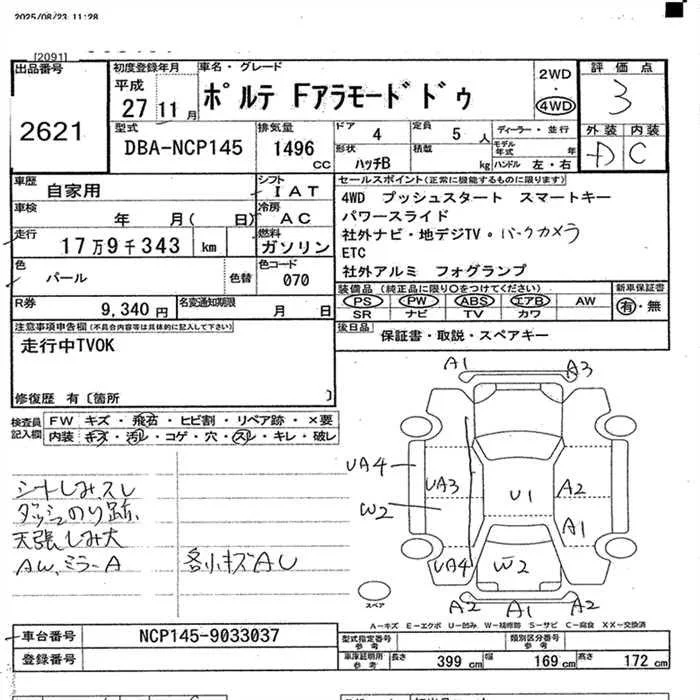 2025/08/23 11:28
[2091]
出品番号
2621
初度登録年月
平成
27 11月
車名・グレード
ポルテ Fアラモードドゥ
2WD
・
4WD
評価点
3
型式
DBA-NCP145
排気量
1496 CC
ドア 4
定員 5 人
ディーラー・並行
形状 ハッチB
積載 kg
モデル年式 年
ハンドル 左・右
外装 内装
D C
車歴
自家用
シフト
IAT
車検
年 月( 日)
冷房
AC
走行
17万9千343 km
燃料
ガソリン
色
パール
色替
色コード
070
R券
9,340円
名変通知期限
月 日
セールスポイント(正常に機能するものに限ります)
4WD プッシュスタート スマートキー
パワースライド
社外ナビ・地デジTV・バークカメラ
ETC
社外アルミ フォグランプ
装備品 (純正品に限り○をつけてください)
PS PW ABS エアB AW
SR ナビ TV カワ
新車保証書
有・無
後日品
保証書・取説・スペアキー
注意事項申告欄(不具合内容等は具体的に記入して下さい)
走行中TVOK
修復歴 有〔箇所 〕
検査員
記入欄
FW キズ・飛石・ヒビ割・リペア跡・×要
内装 キズ・汚レ・コゲ・穴・スレ・キレ・破レ
シートしみ、スレ
ダッシュのり跡、
天張しみ大
AW、ミラーA
各小キズAU
A1 A3
UA4
UA3
W2
U1
A2
A1
UA4
W2
A2 A1 A2
スペア
A－キズ E－エクボ U－凹み W－補修跡 S－サビ C－腐食 XX－交換済
車台番号
NCP145-9033037
登録番号
型式指定番号
参考
類別区分番号
参考
車庫証明用
参考
長さ 399 cm 幅 169 cm 高さ 172 cm